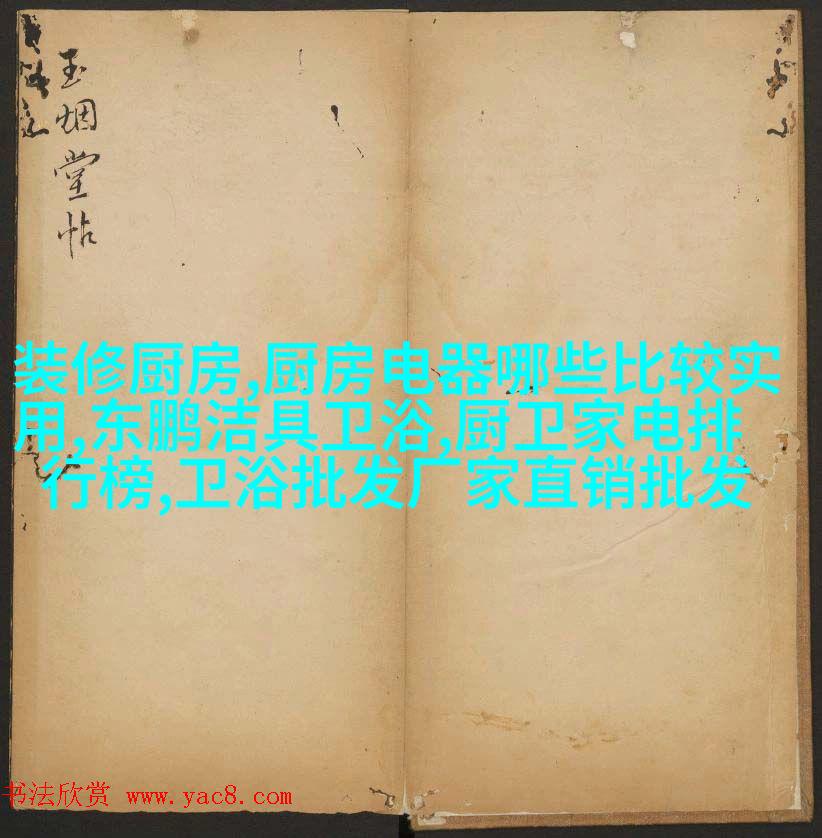 玉烟堂帖
装修厨房,厨房电器哪些比较实
用,东鹏洁具卫浴,厨卫家电排
行榜,卫浴批发厂家直销批发
书法欣赏 www.yac8.com